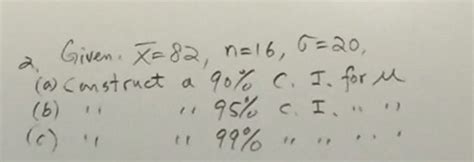 2. Given. x̅=82, n=16, σ=20,
(a) Construct a 90% C. I. for μ
(b) " " 95% C. I. " "
(c) " " 99% " " " "